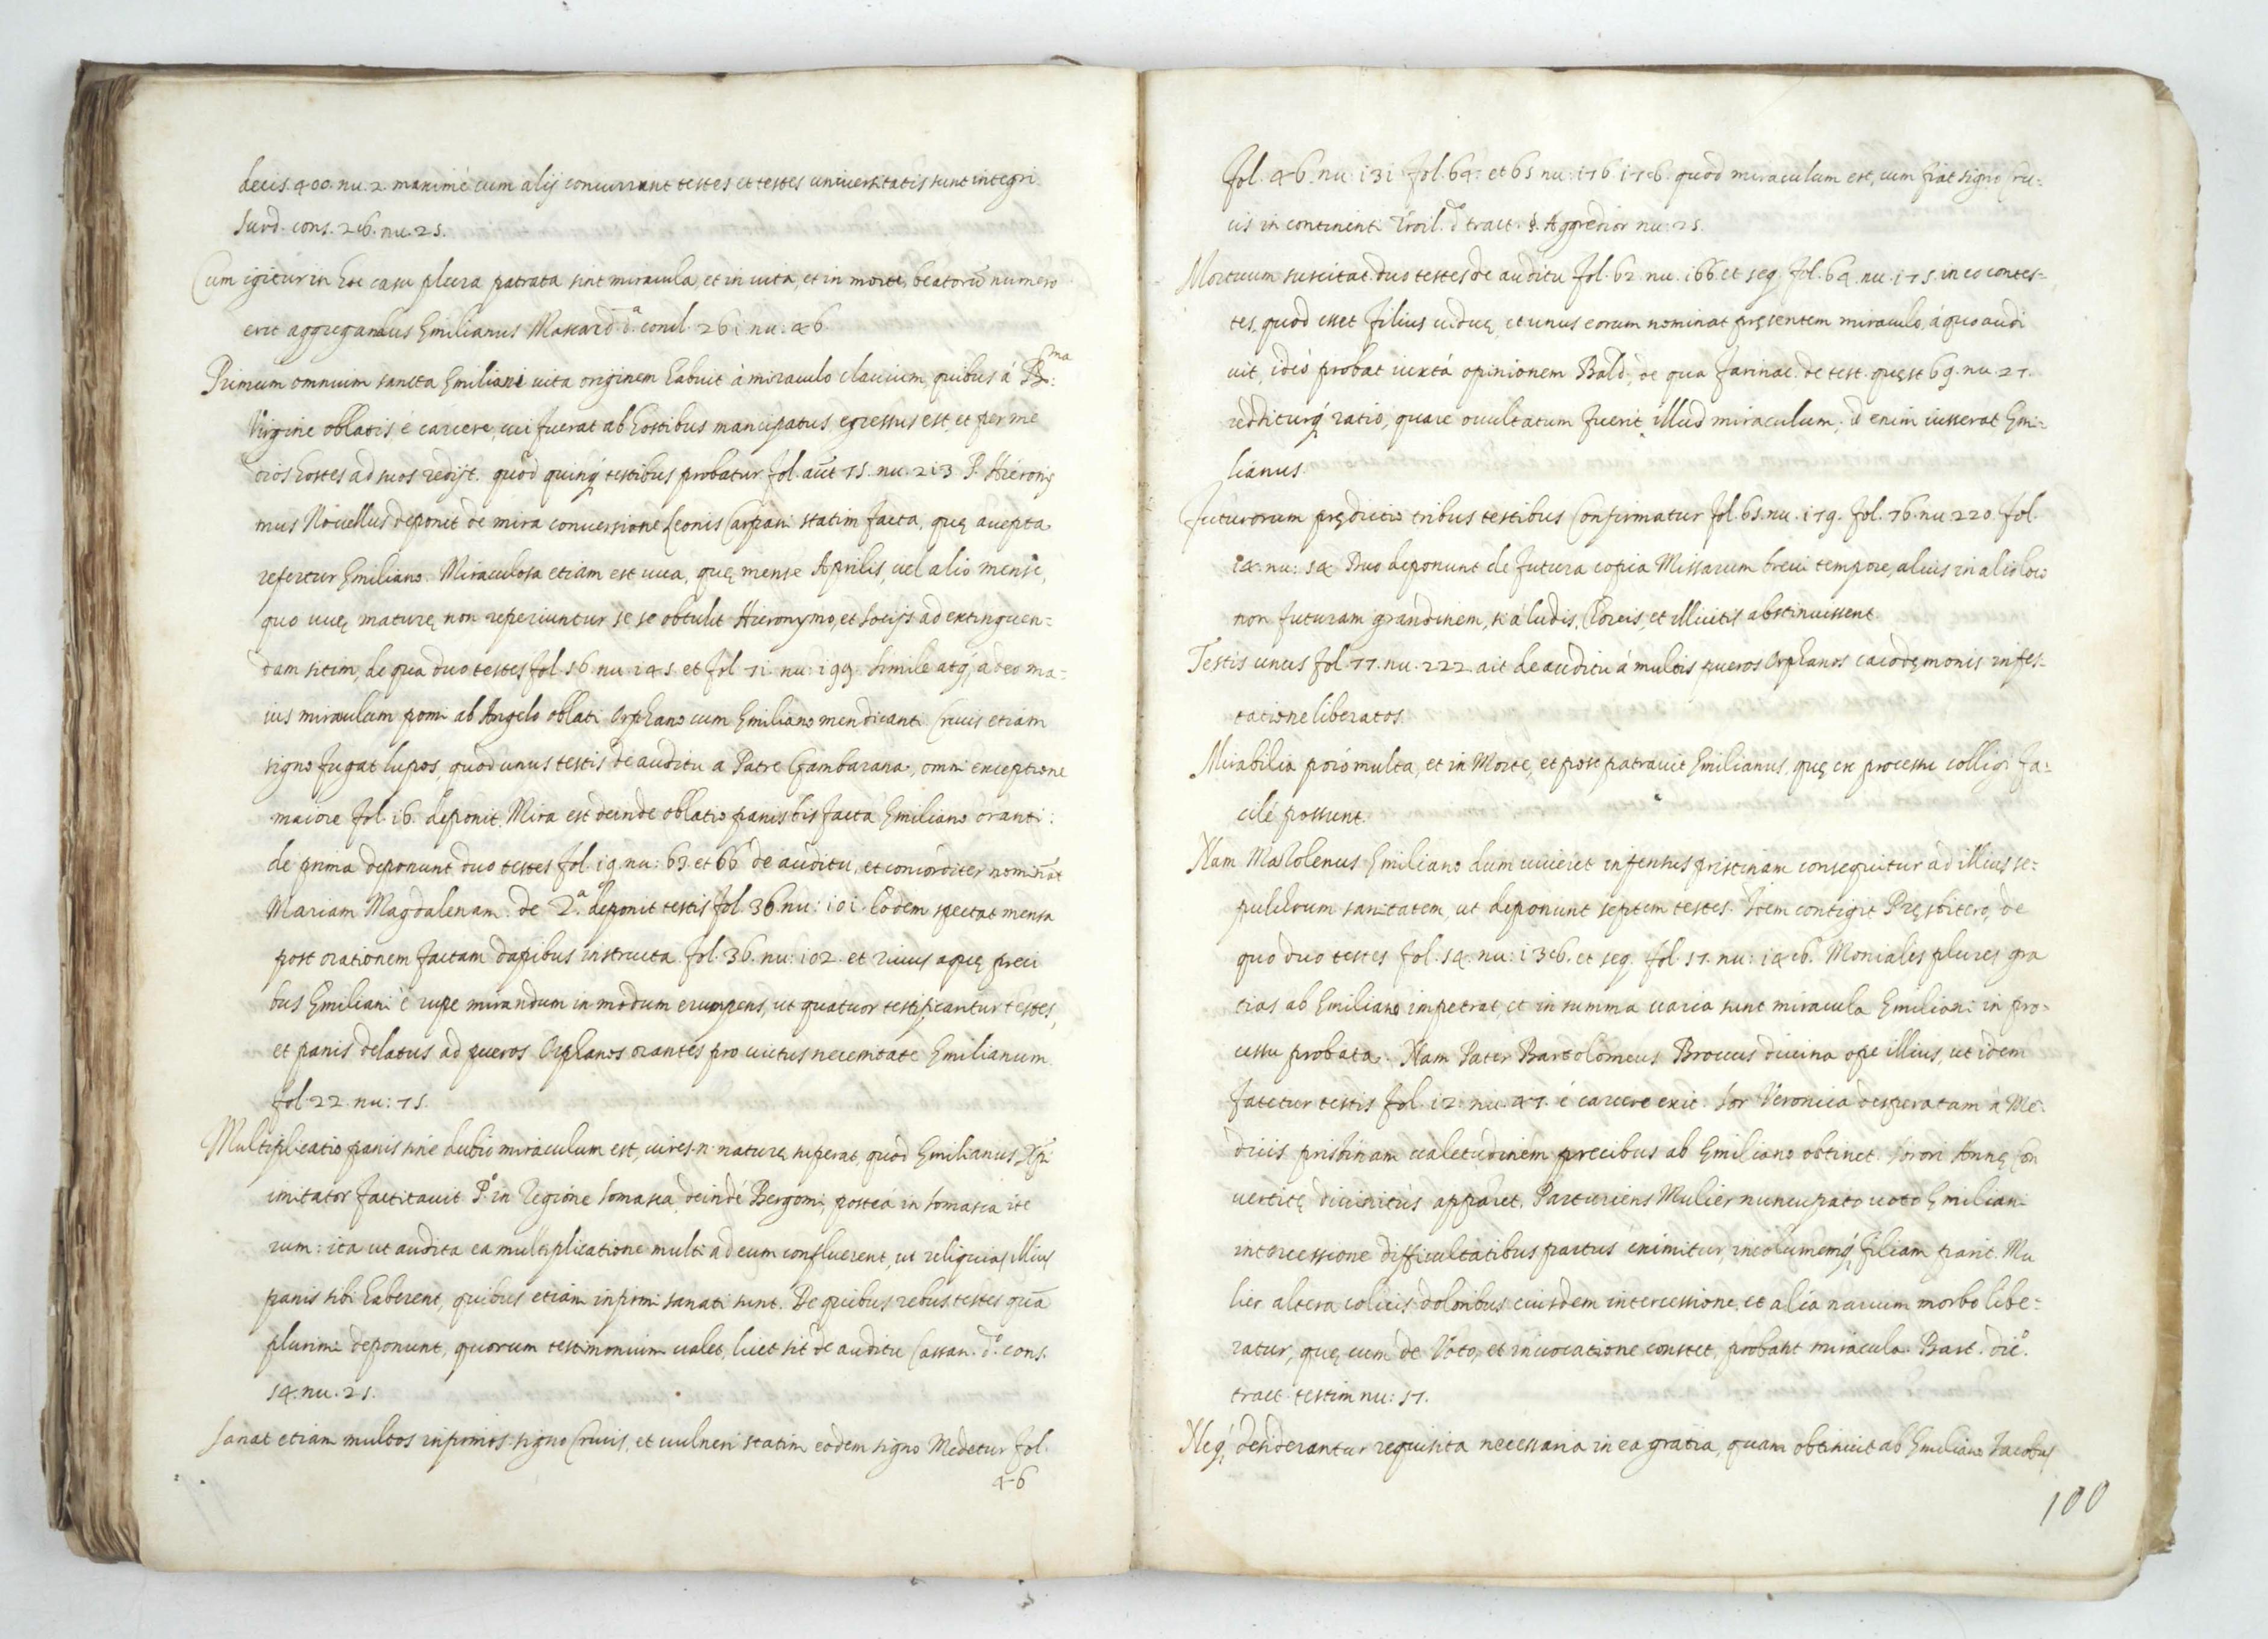 decis. 400. nu. 2. maximè cum alij concurrant testes et testes universitatis sunt integri
Surd. cons. 216. nu. 25.
Cum igitur in hoc casu plura patrata sint miracula, et in uita, et in morte, beatorũ numero
erit aggregandus Emilianus Mascard. d.ª concl. 261 nu. 46
Primum omnium sancta Emiliani uita originem habuit à miraculo clauium, quibus à B.ma
Virgine oblatis è carcere, ubi fuerat ab hostibus mancipatus egressus est, et per me
dios hostes ad suos redijt. quod quinq; testibus probatur fol. aũt 75. nu. 213 P. Hierony
mus Nouellus deponit de mira conuersione Leonis Carpani statim facta, quę accepta
refertur Emiliano. Miraculosa etiam est uua, quę mense Aprilis, uel alio mense,
quo uuę maturę non reperiuntur se se obtulit Hieronymo, et socijs ad extinguen=
dam sitim, de qua duo testes fol. 56. nu. 145. et fol. 71. nu. 199. Simile atq; adeo ma=
ius miraculum pomi ab Angelo oblati Orphano cum Emiliano mendicanti Crucis etiam
signo fugat lupos, quod unus testis de auditu a Patre Gambarana, omni exceptione
maiore fol. 16. deponit. Mira est deinde oblatio panis bis facta Emiliano oranti:
de prima deponunt duo testes fol. 19. nu: 63. et 66 de auditu, et concorditer nominãt
Mariam Magdalenam. de 2.ª deponit testis fol. 36. nu: 101. Eodem spectat mensa
post orationem factam dapibus instructa fol. 36. nu: 102. et riuus aquę preci
bus Emiliani è rupe mirandum in modum erumpens, ut quatuor testificantur testes,
et panis delatus ad pueros Orphanos orantes pro uictus necessitate Emilianum
fol. 22. nu: 75.
Multiplicatio panis sine dubio miraculum est, uires .n. naturę superat, quod Emilianus Xpi
imitator factitauit P.º in regione Somasca, deindè Bergomi, posteà in Somasca ite
rum: ita ut audita ea multiplicatione multi ad eum confluerent, ut reliquias illius
panis sibi haberent, quibus etiam infirmi sanati sunt. De quibus rebus testes quã
plurimi deponunt, quorum testimonium ualet, licet sit de auditu Cassan. d.º cons.
54. nu. 25.
Sanat etiam multos infirmos signo Crucis, et uulneri statim eodem signo Medetur fol.
46
fol. 46. nu: 131 fol. 64. et 65 nu: 176. 178. quod miraculum est, cum fiat signo Cru=
cis in continenti Troil. d. tract. §. Aggredior nu: 25.
Mortuum suscitat duo testes de auditu fol. 62. nu. 166 et seq. fol. 64. nu. 175. in eo contes=
tes, quod esset filius uiduę, et unus eorum nominat pręsentem miraculo, á quo audi
uit, ideò probat iuxtà opinionem Bald., de qua Farinac. de test. quęst 69. nu 27.
redditurq; ratio, quare occultatum fuerit illud miraculum; id enim iusserat Emi=
lianus.
Futurorum prędictio tribus testibus Confirmatur fol. 65. nu. 179. fol. 76. nu 220. fol.
14. nu: 54 Duo deponunt de futura copia Missarum breui tempore, alius in alio loco
non futuram grandinem, si á ludis, Choreis, et illicitis abstinuissent.
Testis unus fol. 77. nu. 222. ait de auditu á multis pueros Orphanos cacodęmonis infes=
tatione liberatos.
Mirabilia porò multa, et in Morte, et post patrauit Emilianus, quę ex processu colligi fa=
cilè possunt.
Nam Mazolenus Emiliano dum uiueret infensus pristinam consequitur ad illius se=
pulchrum sanitatem, ut deponunt septem testes. Idem contigit Pręsbitero, de
quo duo testes fol. 54. nu: 136. et seq. fol. 57. nu: 146. Moniales plures gra
tias ab Emiliano impetrat, et in summa uaria sunt miracula Emiliani in pro=
cessu probata. Nam Pater Bartolomeus Broccus diuina ope illius, ut idem
fatetur testis fol. 12. nu. 47. è carcere exit. Sor Veronica desperatam à Me=
dicis pristinam ualetudinem precibus ab Emiliano obtinet. Sorori Annę Con
uertitę diuinitùs apparet. Parturiens Mulier nuncupato uoto Emiliani
intercessione difficultatibus partus eximitur, incolumemq; filiam parit. Mu
lier altera colicis doloribus eiusdem intercessione, et alia narium morbo libe=
ratur, quę cum de Voto, et inuocatione constet, probant miracula. Bart. dic.º
tract. testim nu: 57.
Neq; desiderantur requisita necessaria in ea gratia, quam obtinuit ab Emiliano Iacobus
100